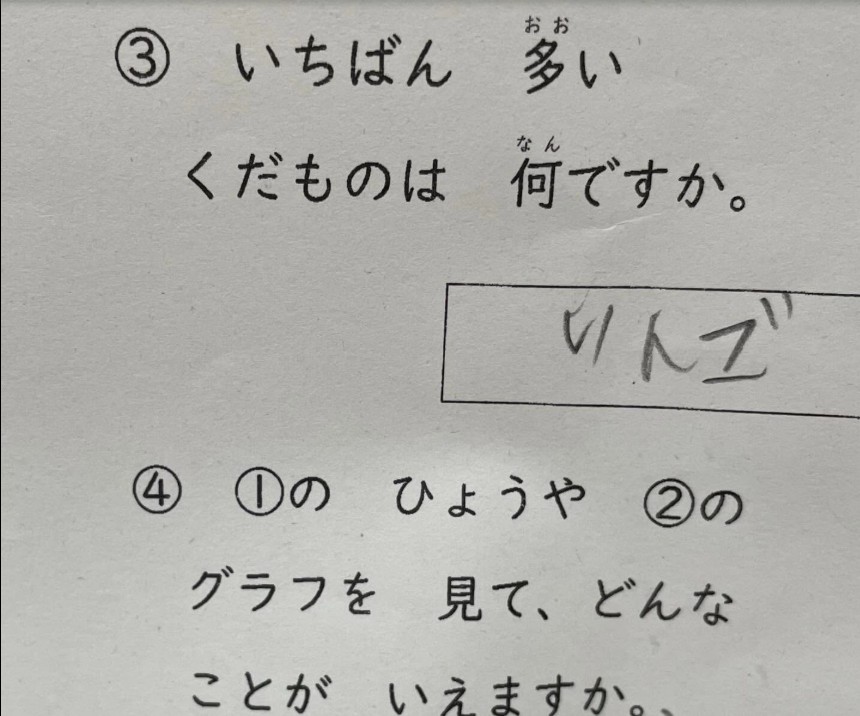 ③ いちばん 多い
くだものは 何ですか。
りんご
④ ①の ひょうや ②の
グラフを 見て、どんな
ことが いえますか。